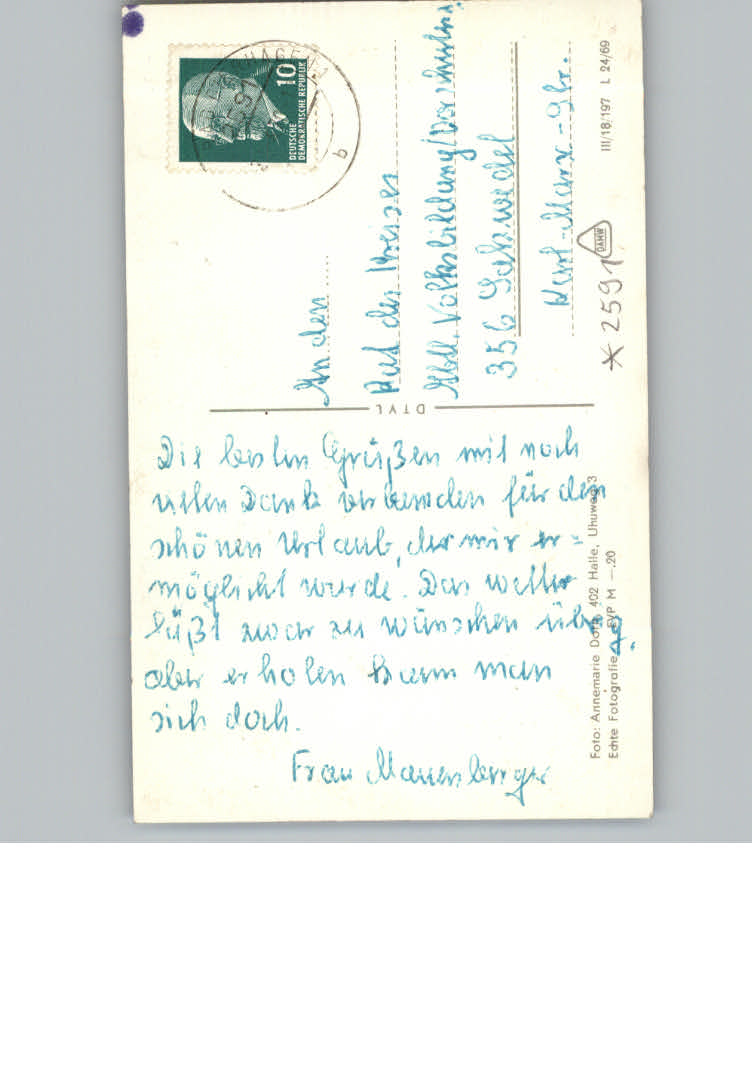 Die besten Grüßen mit noch
vielen Dank verbunden für den
schönen Urlaub, der mir er=
möglicht wurde. Das Wetter
läßt zwar zu wünschen übrig.
aber erholen kann man
sich doch.
Frau Mauersberger
An den
Rat des Kreises
Abtl. Volksbildung/Vorschulen.
356 Salzwedel
Karl-Marx-Str.
10
DEUTSCHE
DEMOKRATISCHE REPUBLIK
HAGEN
b
DTVL
* 2591
DAMW
III/18/197 L 24/69
Foto: Annemarie 402 Halle, Uhuweg 3
Echte Fotografie EVP M —.20